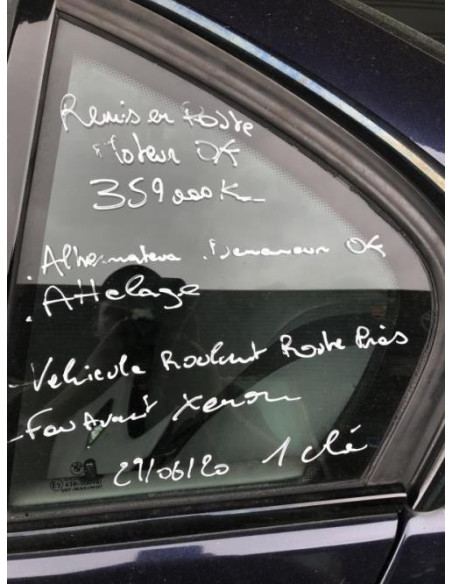 Remis en Poste
Moteur OK
359 000 K
. Alternateur . Demarreur OK
. Attelage
- Vehicule Roulant Reste Pièces
- Feu Avant Xenon
29/06/20 1 clé